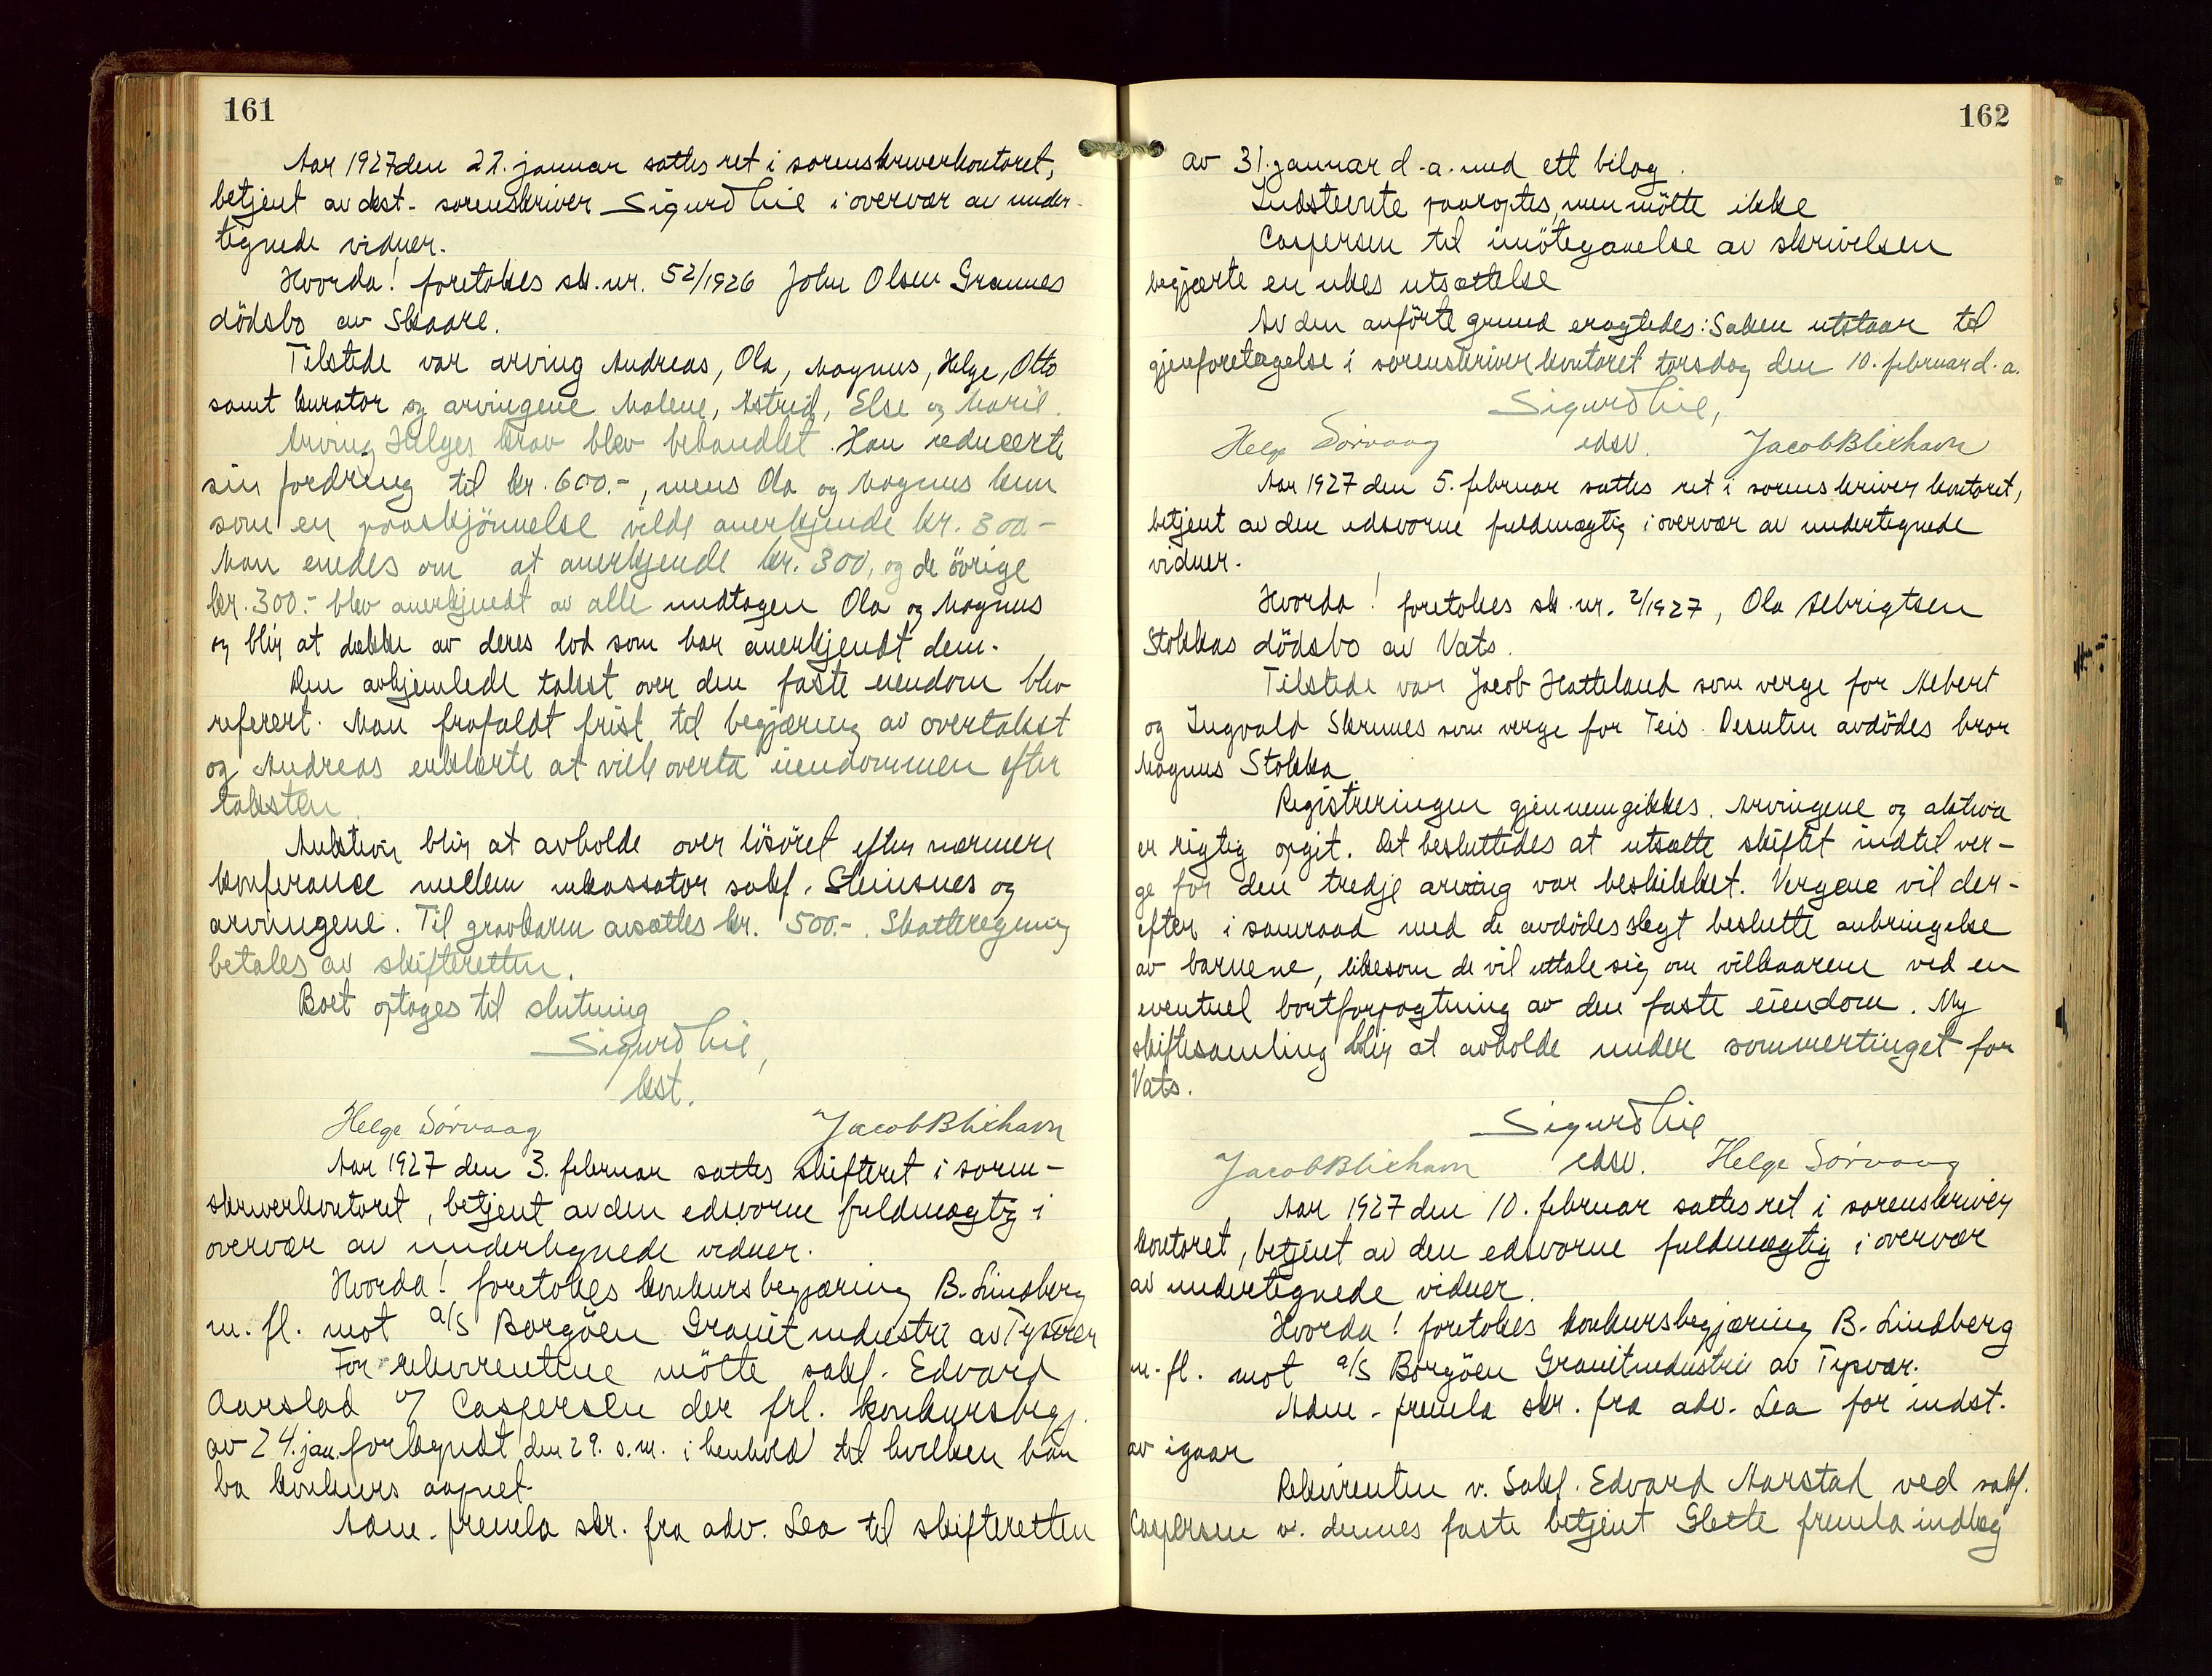 161
Aar 1927 den 27. januar sattes ret i sorenskriverkontoret,
betjent av kst. sorenskriver Sigurd Lie i overvær av under-
tegnede vidner.
Hvorda! foretokes sk. nr. 52/1926 John Olsen Grannes
dödsbo av Skaare.
Tilstede var arving Andreas, Ola, Magnus, Helge, Otto
samt kurator og arvingene Malene, Astrid, Else og Marie.
Arving Helges krav blev behandlet. Han reducerte
sin fordring til kr. 600.-, mens Ola og Magnus kun
som en paaskjönnelse vilde anerkjende kr. 300.-
Man enedes om at anerkjende kr. 300, og de övrige
kr. 300.- blev anerkjendt av alle undtagen Ola og Magnus
og blir at dække av deres lod som har anerkjendt dem.
Den avhjemlede takst over den faste eiendom blev
referert. Man frafaldt frist til begjæring av overtakst
og Andreas erklærte at ville overta eiendommen efter
taksten.
Auktion blir at avholde over lösöret efter nærmere
konferanse mellem inkassator sakf. Steinsnes og
arvingene. Til gravkarm avsættes kr. 500.-. Skatteregning
betales av skifteretten.
Boet optages til slutning
Sigurd Lie,
kst.
Helge Sørvaag Jacob Blixhavn
Aar 1927 den 3. februar sattes skifteret i soren-
skriverkontoret, betjent av den edsvorne fuldmægtig i
overvær av undertegnede vidner.
Hvorda! foretokes konkursbegjæring B. Lindberg
m. fl. mot a/s Borgöen Granitindustri av Tysvær
For rekvirentene mötte sakf. Edvard
Aarstad v/ Caspersen der frl. konkursbegj.
av 24. jan. forkyndt den 29. s.m. i henhold til hvilken han
ba konkurs aapnet.
Adm. fremla skr. fra adv. Lea til skifteretten
162
av 31. januar d.a. med ett bilag.
Indstevnte paaroptes, men mötte ikke
Caspersen til imötegaaelse av skrivelsen
begjærte en ukes utsættelse
Av den anförte grund eragtedes: Saken utstaar til
gjenforetagelse i sorenskriverkontoret torsdag den 10. februar d.a.
Sigurd Lie,
Helge Sørvaag edsv. Jacob Blixhavn
Aar 1927 den 5. februar sattes ret i sorenskriverkontoret,
betjent av den edsvorne fuldmægtig i overvær av undertegnede
vidner.
Hvorda! foretokes sk. nr. 2/1927, Ola Aebrigtsen
Stokkas dödsbo av Vats.
Tilstede var Jacob Hatteland som verge for Aebert
og Ingvald Skrunes som verge for Teis. Desuten avdödes bror
Magnus Stokka.
Registreringen gjennemgikkes. Arvingene og aktiva
er rigtig opgit. Det besluttedes at utsætte skiftet indtil ver-
ge for den tredje arving var beskikket. Vergene vil der-
efter i samraad med de avdödes slegt beslutte anbringelse
av barnene, likesom de vil uttale sig om vilkaarene ved en
eventuel bortforpagtning av den faste eiendom. Ny
skiftesamling blir at avholde under sommertinget for
Vats.
Sigurd Lie
Jacob Blixhavn edsv. Helge Sørvaag
Aar 1927 den 10. februar sattes ret i sorenskriver
kontoret, betjent av den edsvorne fuldmægtig i overvær
av undertegnede vidner.
Hvorda! foretokes konkursbegjæring B. Lindberg
m. fl. mot a/s Borgöen Granitindustri av Tysvær.
Adm. fremla skr. fra adv. Lea for indst.
av igaar
Rekvirenten v. Sakf. Edvard Aarstad ved sakf.
Caspersen v. dennes faste betjent Slette fremla indlæg